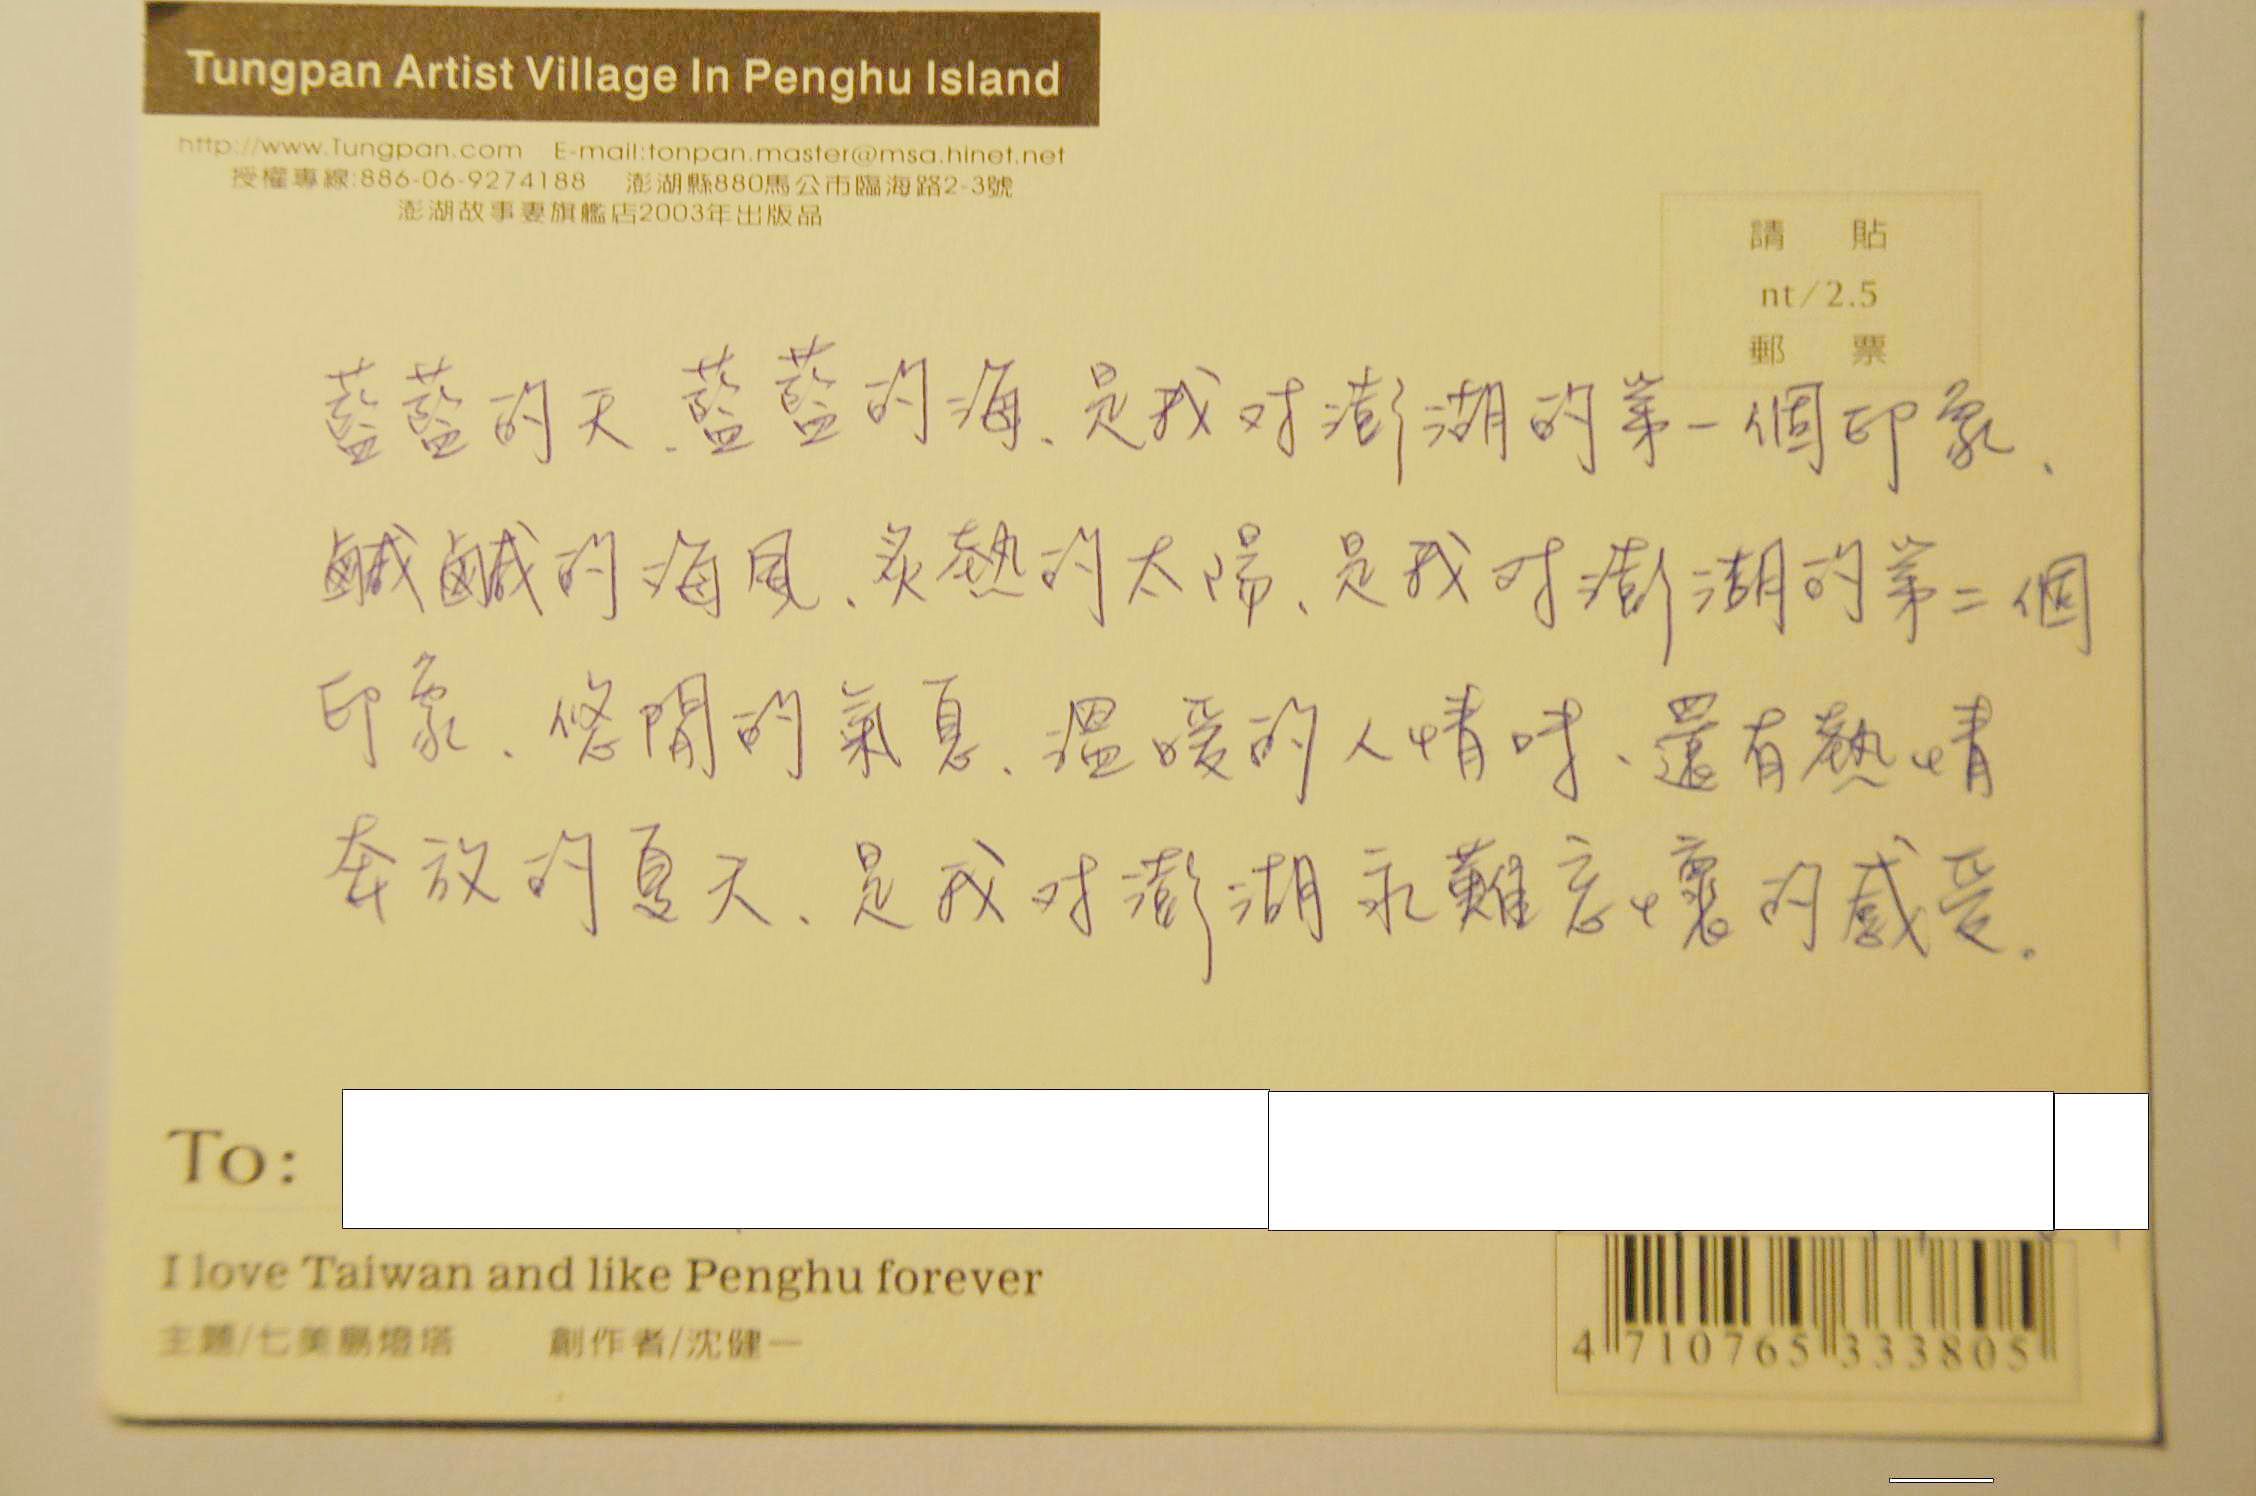 Tungpan Artist Village In Penghu Island
http://www.Tungpan.com E-mail:tonpan.master@msa.hinet.net
授權專線:886-06-9274188 澎湖縣880馬公市臨海路2-3號
澎湖故事妻旗艦店2003年出版品
請 貼
nt/2.5
郵 票
藍藍的天、藍藍的海、是我对澎湖的第一個印象、
鹹鹹的海風、炙熱的太陽、是我对澎湖的第二個
印象、悠閒的氣息、溫暖的人情味、還有熱情
奔放的夏天、是我对澎湖永難忘懷的感受.
To:
I love Taiwan and like Penghu forever
主題/七美島燈塔 創作者/沈健一
4 710765 333805